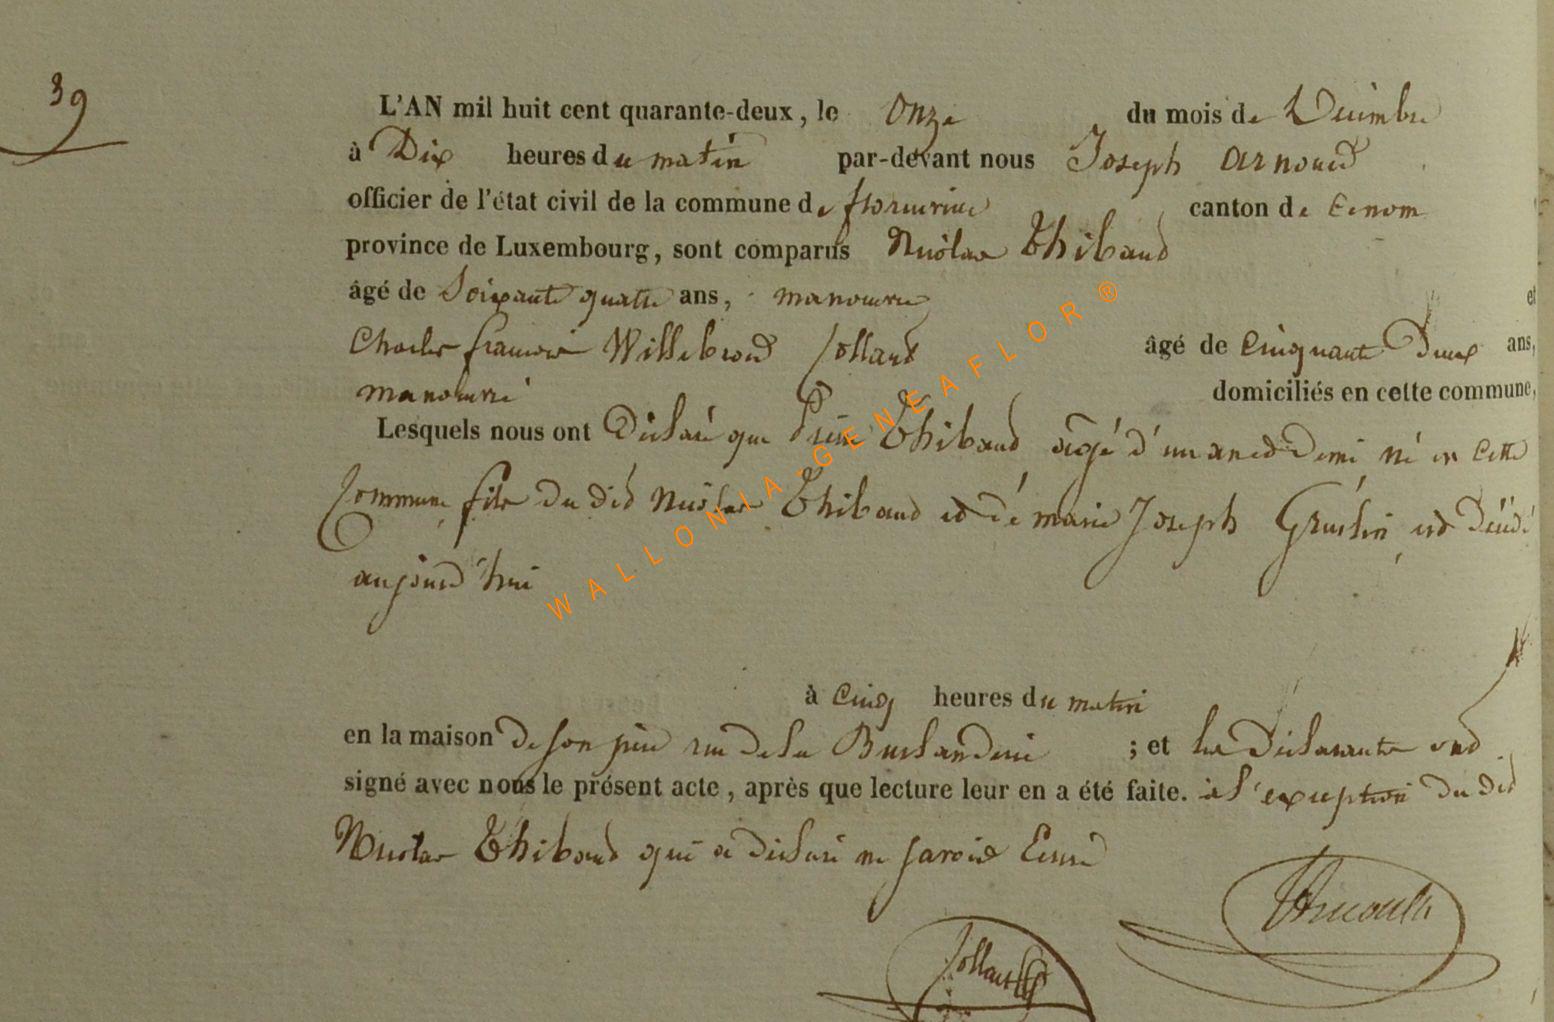 39
L'AN mil huit cent quarante-deux, le onze du mois de Decembre
à Dix heures du matin par-devant nous Joseph Arnould
officier de l'état civil de la commune de florenville canton de
province de Luxembourg, sont comparus Nicolas Thibaud
âgé de Soixante quatre ans, manouvrie et
Charles francois Willebrord Collard âgé de Cinquante Deux ans,
manouvrié domiciliés en cette commune,
Lesquels nous ont Déclaré que Thibaud agé d'un an et Demi né en Cette
Commune fils du dit Nicolas Thibaud et dé marie Joseph est Décédé
aujourd'hui
à Cinq heures du matin
en la maison de son père rue de la ; et les Déclarants ont
signé avec nous le présent acte, après que lecture leur en a été faite. à l'exception du dit
Nicolas Thibaud qui a déclaré ne savoir Ecrire
Collard
WALLONIA-GENEAFLOR®